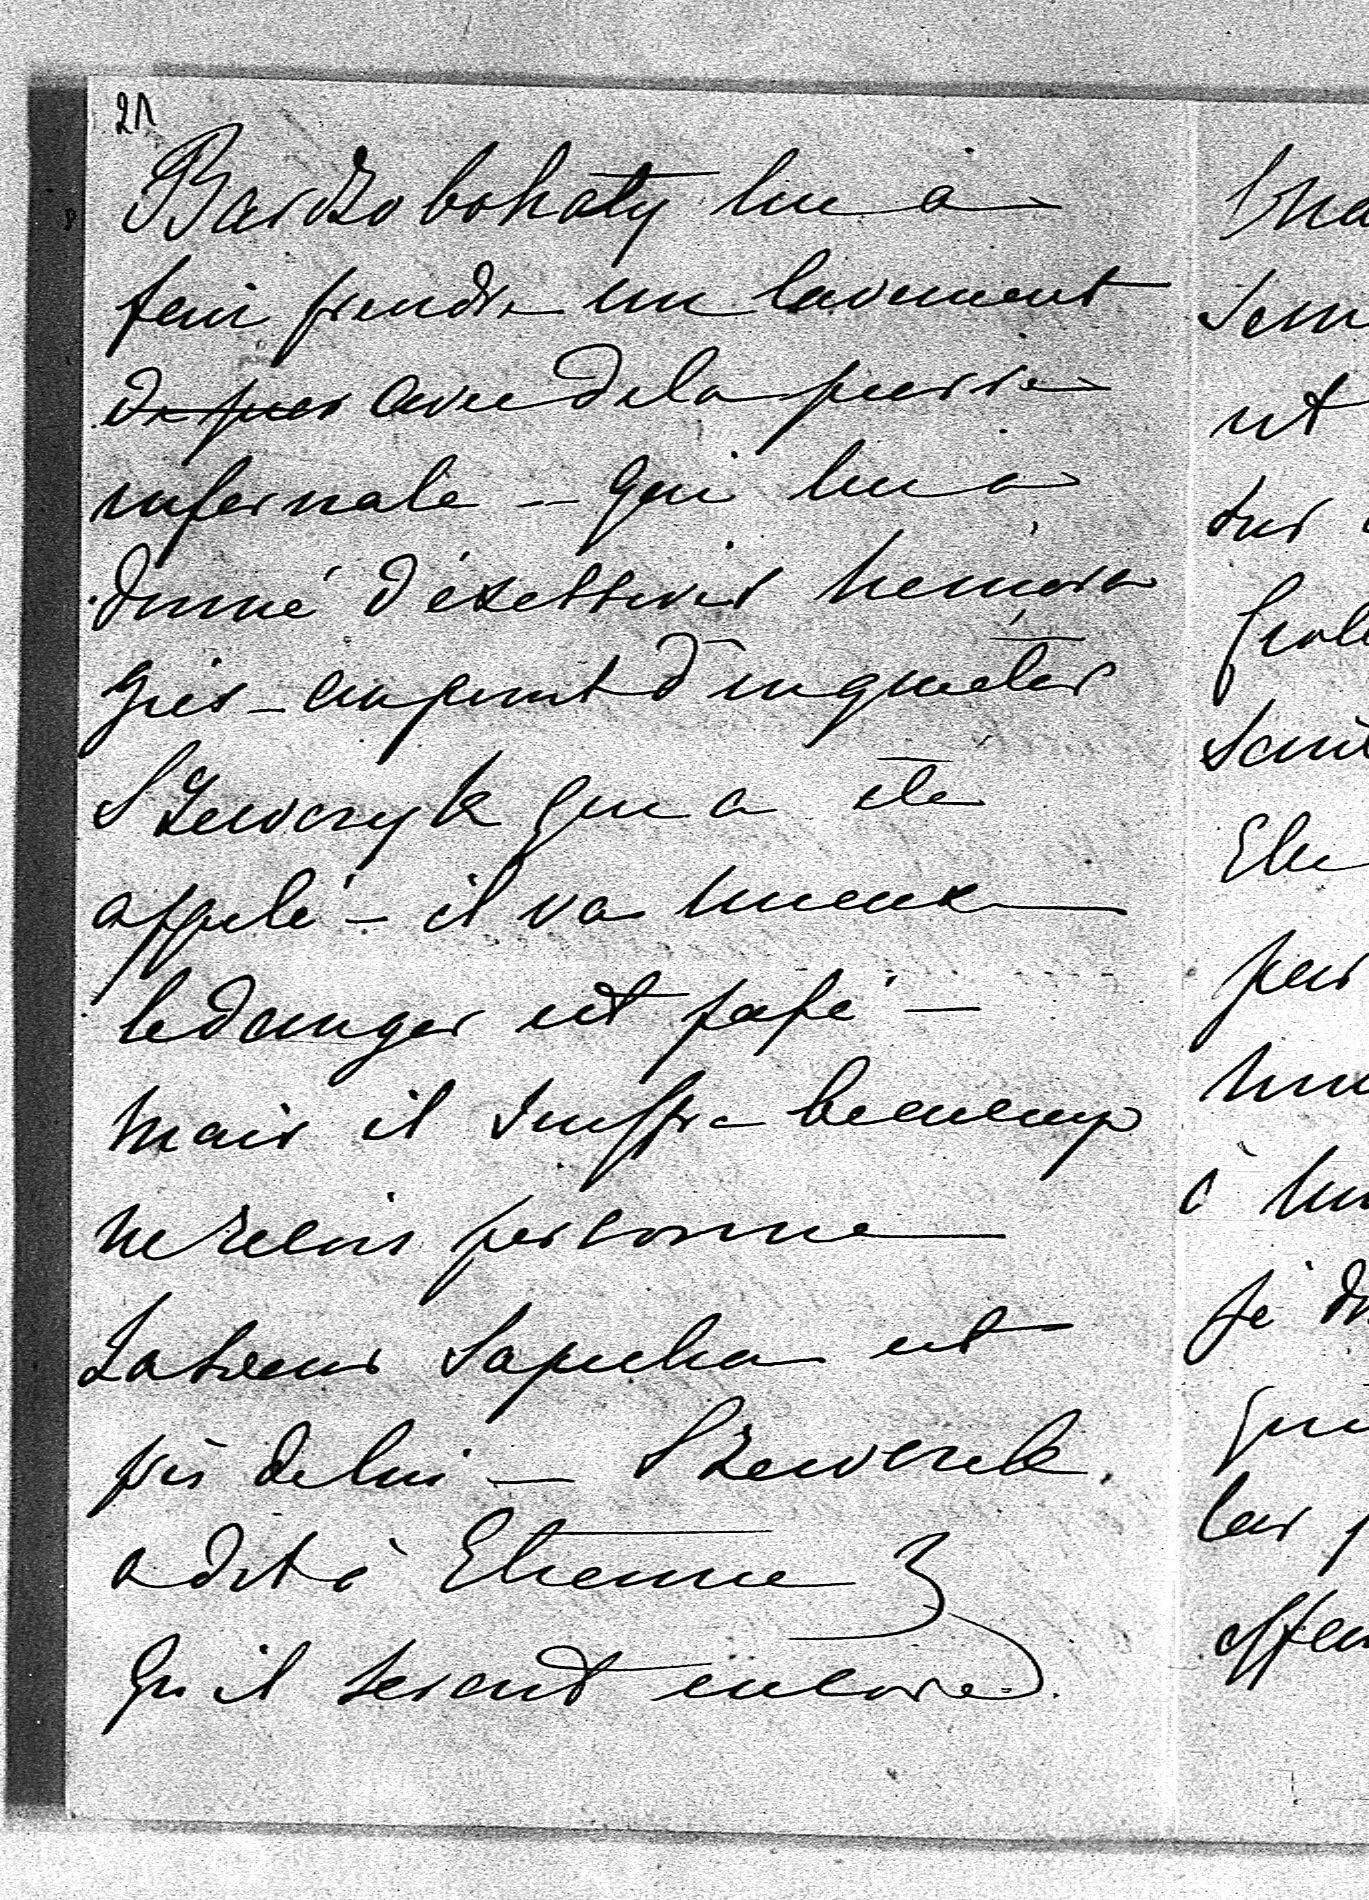 21
Bardzobohaty lui a
fair prendre un lavement
de pier avec de la pierre
infernale – qui lui a
donné d'éxessives hémora
gies – au point d'inquieter
Szewczyk qui a ete
appelé – il va mieux
le danger est passé –
mais il souffre beaucoup
ne recois personne
La sœur Sapieha est
près de lui – Szewczek
a dit à Etienne
qu'il serait encore
sem
est
sur
Elle
par
à
je
offen